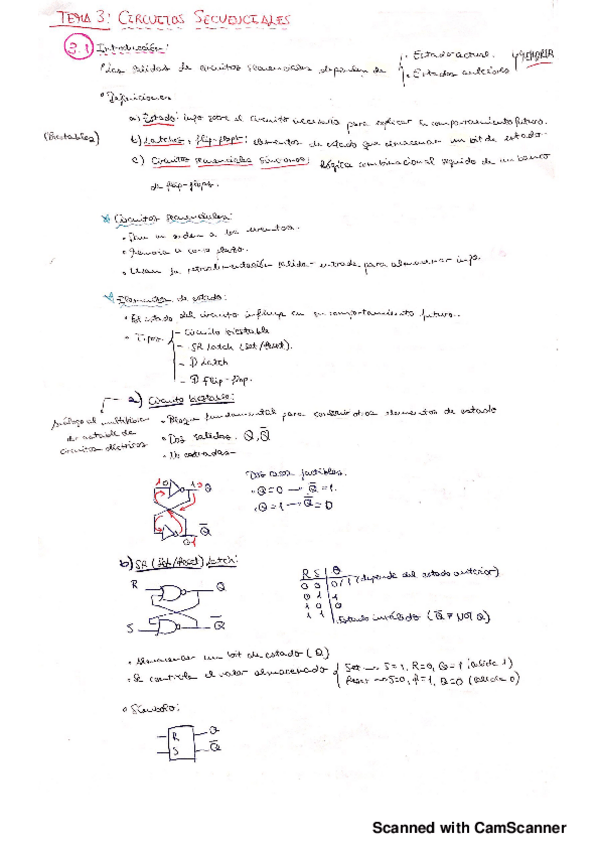 TEMA 3: CIRCUITOS SECUENCIALES
3.1 Introducción:
Las salidas de circuitos secuenciales dependen de
- Estado actual.
- Estados anteriores
MEMORIA
• Definiciones
a) Estado: info sobre el circuito necesaria para explicar su comportamiento futuro.
(Biestables)
b) Latches y flip-flops: elementos de estado que almacenan un bit de estado.
c) Circuitos secuenciales síncronos: lógica combinacional seguido de un banco
de flip-flops.
* Circuitos secuenciales:
• Dan un orden a los eventos.
• Memoria a corto plazo.
• Usan la retroalimentación salida-entrada para almacenar info
* Elementos de estado:
• El estado del circuito influye en su comportamiento futuro.
• Tipos
- Circuito biestable
- SR latch (Set/Reset).
- D Latch
- D Flip-flop.
a) Circuito biestable:
• Bloque fundamental para construir otros elementos de estado
• Dos salidas: Q, Q̅
• No entradas
circuitos eléctricos
Dos casos posibles.
• Q=0 → Q̅=1.
• Q=1 → Q̅=0
1 0 1 → Q
Q̅
0 1
b) SR (Set/Reset) latch:
R Q
S Q̅
R S Q
0 0 0/1 (depende del estado anterior)
0 1 1
1 0 0
1 1 Estado inválido (Q̅ ≠ NOT Q)
• Almacenar un bit de estado (Q)
• Se controla el valor almacenado
Set → S=1, R=0, Q=1 (salida 1)
Reset → S=0, R=1, Q=0 (salida 0)
• Símbolo:
R Q
S Q̅
Scanned with CamScanner